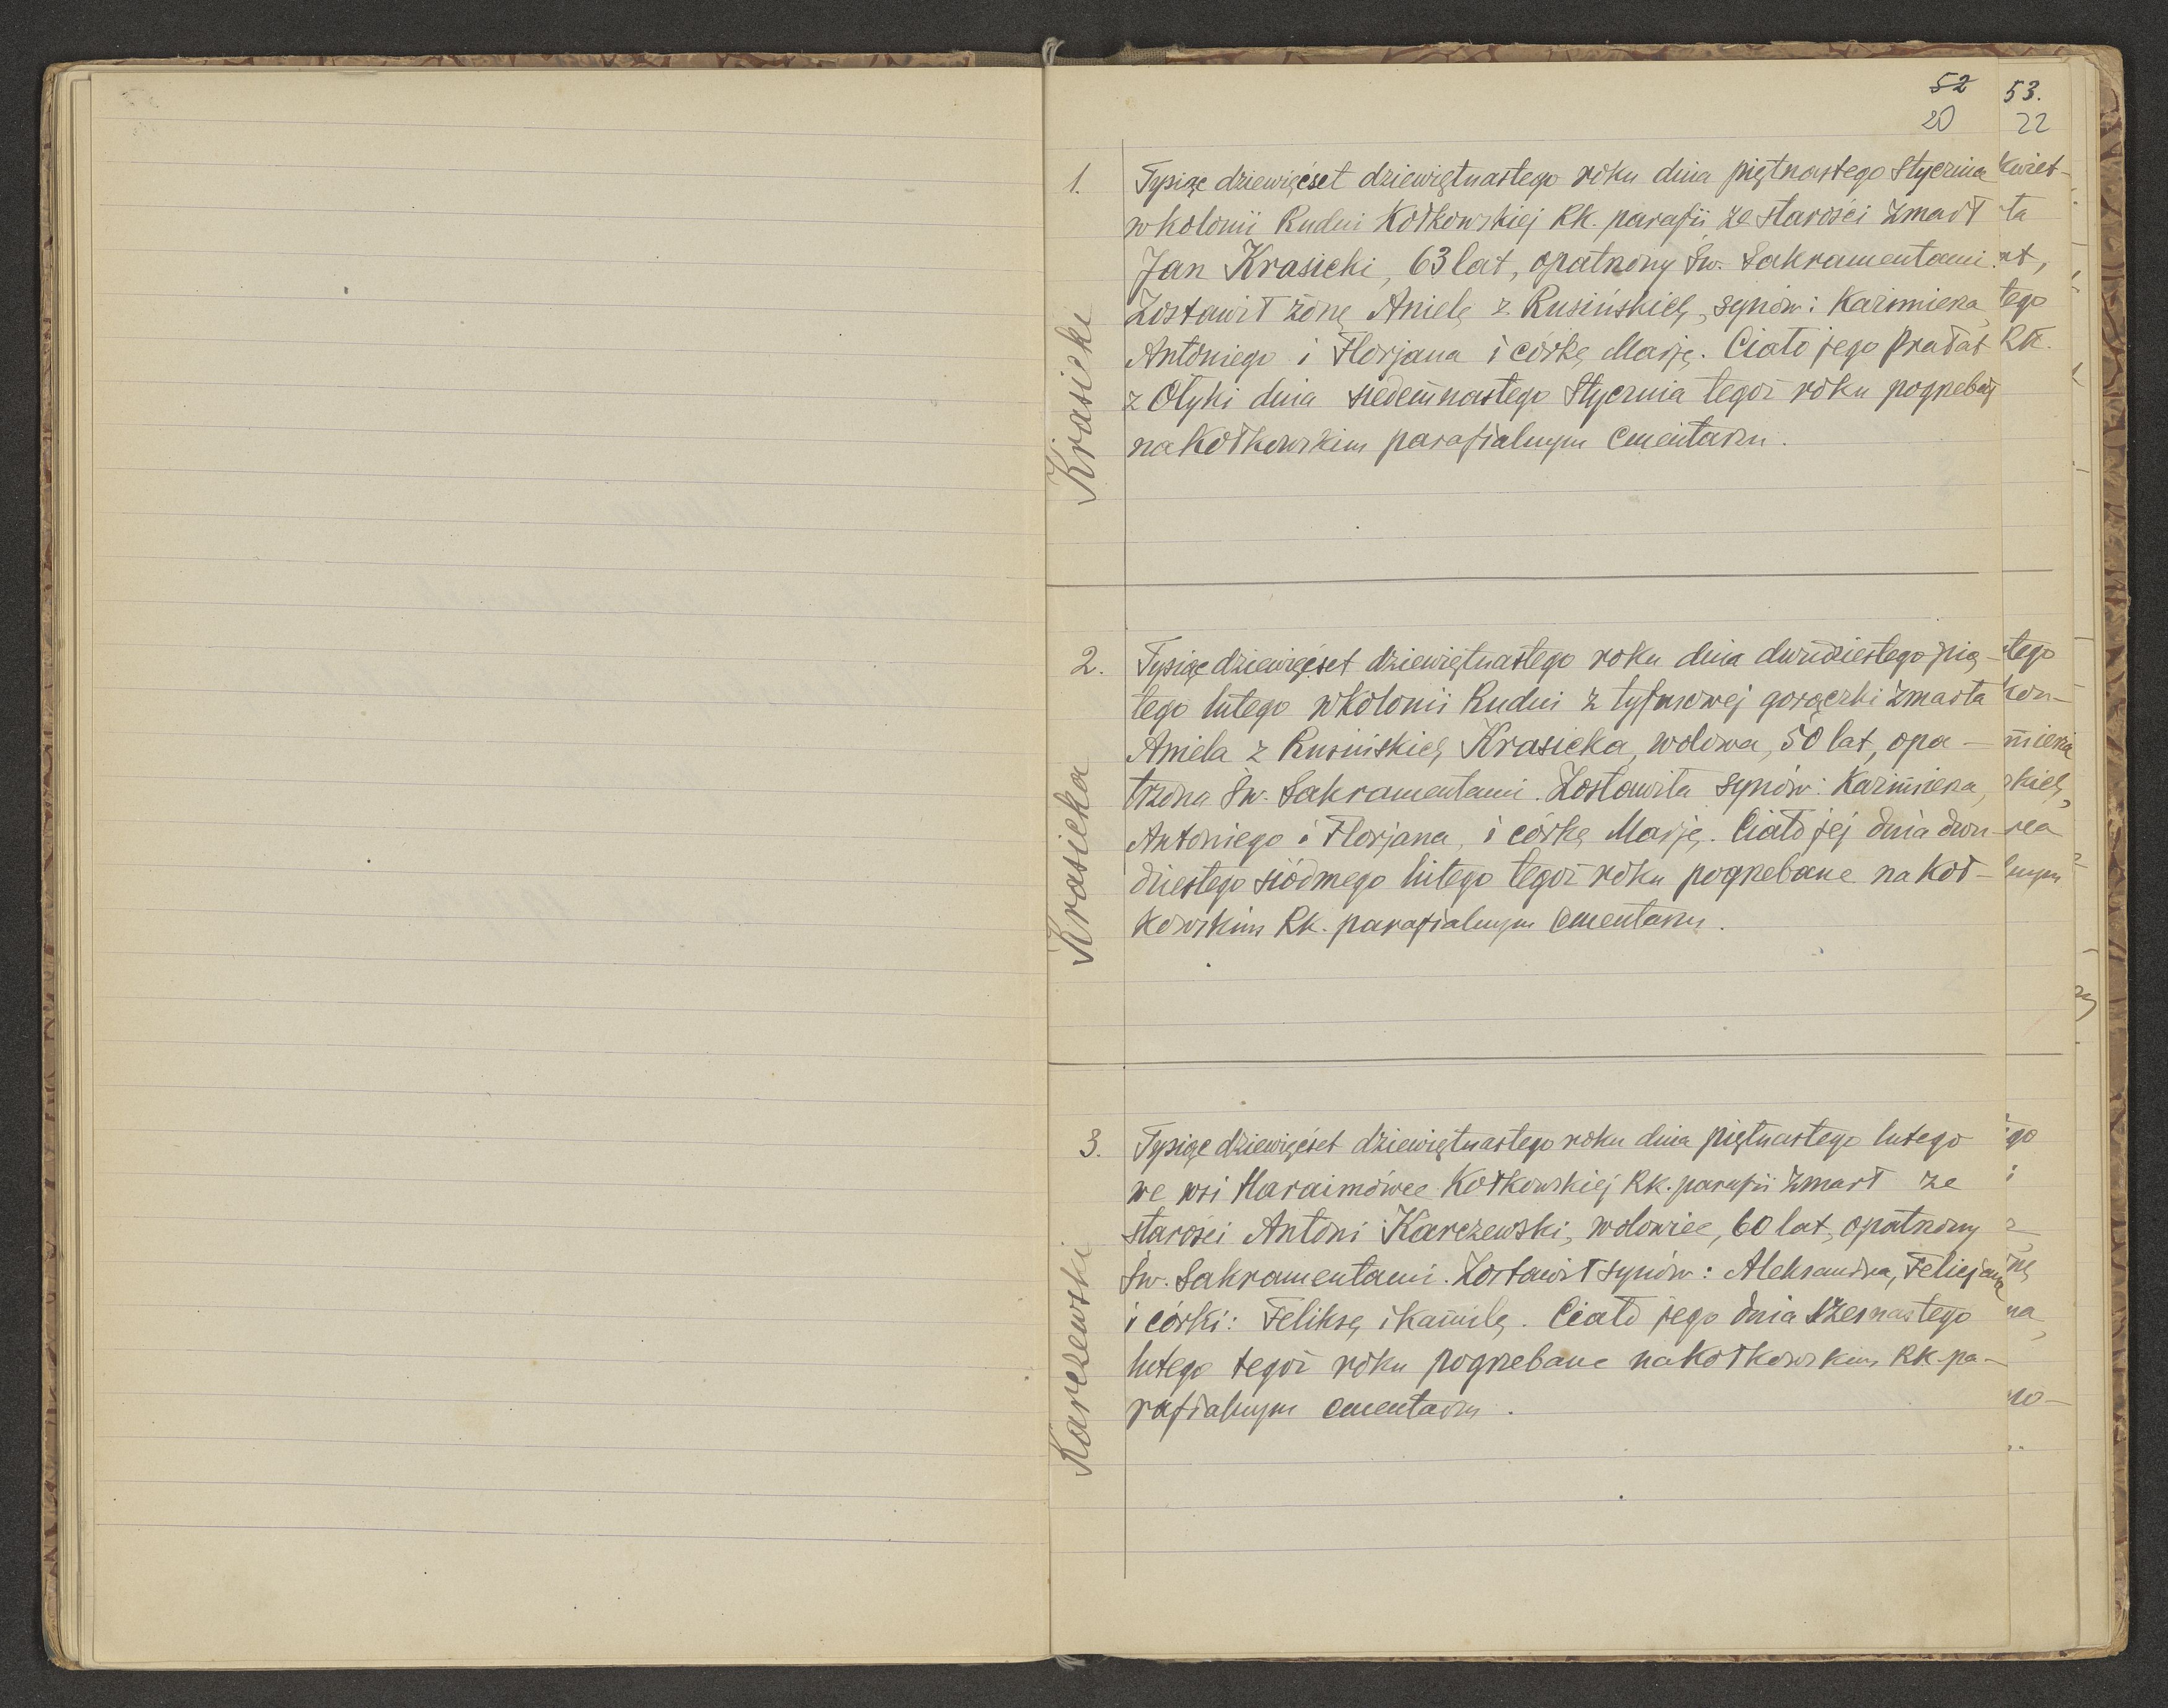 52
20
1.
Krasicki
Tysiąc dziewięćset dziewiętnastego roku dnia piętnastego Stycznia
w kolonii Rudni Kołkowskiej Rk. parafii ze starości zmarł
Jan Krasicki, 63 lat, opatrzony Św. Sakramentami.
Zostawił żonę Anielę z Rusińskich, synów: Kazimierza,
Antoniego i Florjana i córkę Marję. Ciało jego Prałat
z Ołyki dnia siedemnastego Stycznia tegoż roku pogrzebał
na Kołkowskim parafialnym Cmentarzu.
2.
Krasicka
Tysiąc dziewięćset dziewiętnastego roku dnia dwudziestego pią-
tego lutego w kolonii Rudni z tyfusowej gorączki zmarła
Aniela z Rusińskich Krasicka, wdowa, 50 lat, opa-
trzona Św. Sakramentami. Zostawiła synów: Kazimierza,
Antoniego i Florjana, i córkę Marję. Ciało jej dnia dwu-
dziestego siódmego lutego tegoż roku pogrzebane na Koł-
kowskim Rk. parafialnym Cmentarzu.
3.
Karczewski
Tysiąc dziewięćset dziewiętnastego roku dnia piętnastego lutego
we wsi Haraimówce Kołkowskiej Rk. parafii zmarł ze
starości Antoni Karczewski, wdowiec, 60 lat, opatrzony
Św. Sakramentami. Zostawił synów: Aleksandra, Felicjana
i córki: Feliksę i Kamilę. Ciało jego dnia szesnastego
lutego tegoż roku pogrzebane na Kołkowskim Rk. pa-
rafialnym cmentarzu.
53.
22
kwiet-
ta
rt,
tego
Rk.
tego
kon-
mierza
skich,
lnym
go
i
na,